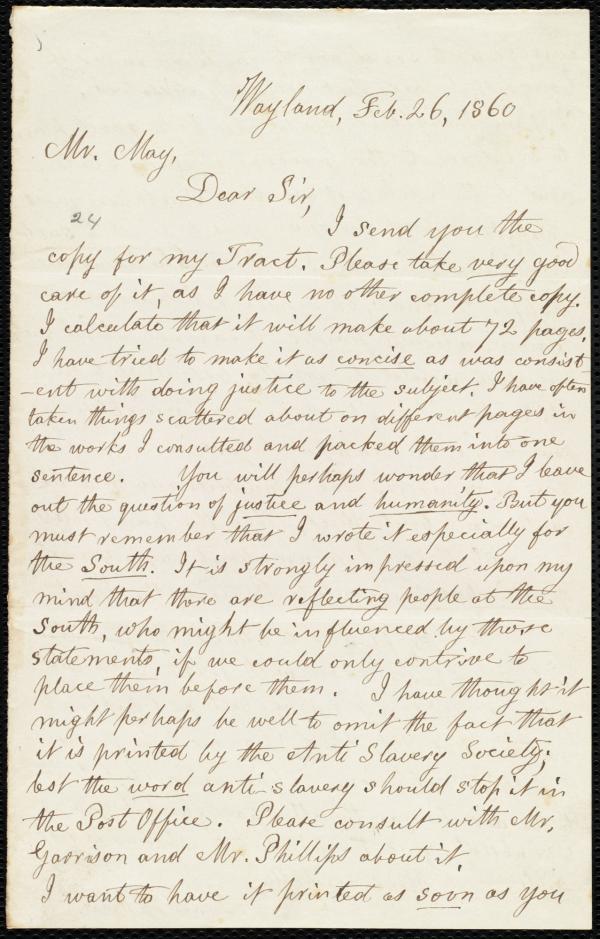 Wayland, Feb. 26, 1860
Mr. May,
Dear Sir,
24
I send you the
copy for my Tract. Please take very good
care of it, as I have no other complete copy.
I calculate that it will make about 72 pages.
I have tried to make it as concise as was consist-
-ent with doing justice to the subject. I have often
taken things scattered about on different pages in
the works I consulted and packed them into one
sentence. You will perhaps wonder that I leave
out the question of justice and humanity. But you
must remember that I wrote it especially for
the South. It is strongly impressed upon my
mind that there are reflecting people at the
South, who might be influenced by these
statements, if we could only contrive to
place them before them. I have thought it
might perhaps be well to omit the fact that
it is printed by the Anti Slavery Society;
lest the word anti-slavery should stop it in
the Post Office. Please consult with Mr.
Garrison and Mr. Phillips about it.
I want to have it printed as soon as you